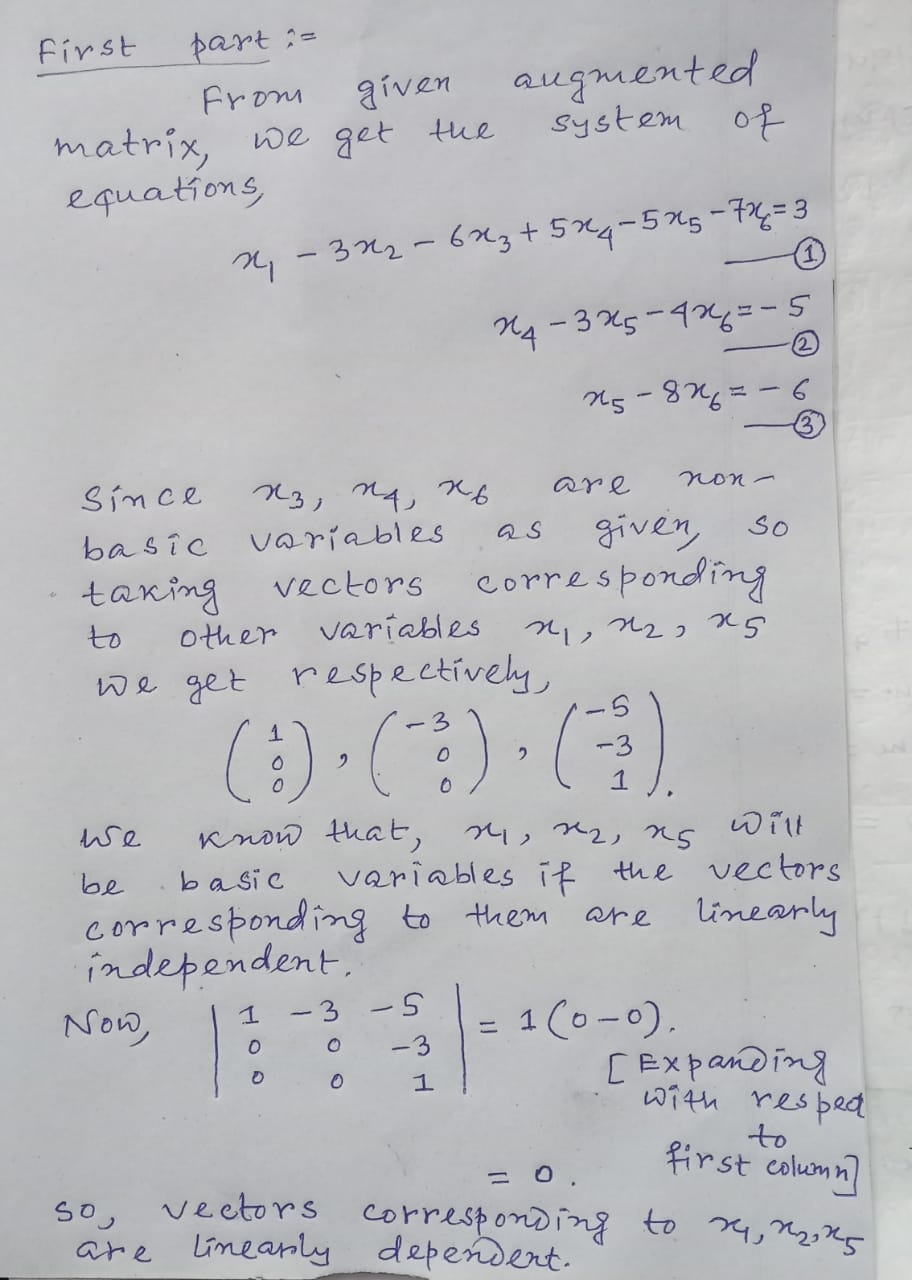 First part :=
From given augmented
matrix, we get the system of
equations,
x₁ - 3x₂ - 6x₃ + 5x₄ - 5x₅ - 7x₆ = 3
①
x₄ - 3x₅ - 4x₆ = - 5
②
x₅ - 8x₆ = - 6
③
Since x₃, x₄, x₆ are non-
basic variables as given, so
taking vectors corresponding
to other variables x₁, x₂, x₅
we get respectively,
(1 0 0), (-3 0 0), (-5 -3 1).
We know that, x₁, x₂, x₅ will
be basic variables if the vectors
corresponding to them are linearly
independent.
Now, | 1 -3 -5 | = 1(0-0).
| 0 0 -3 |
| 0 0 1 |
[Expanding
with respect
to
first column]
= 0.
so, vectors corresponding to x₁, x₂, x₅
are linearly dependent.